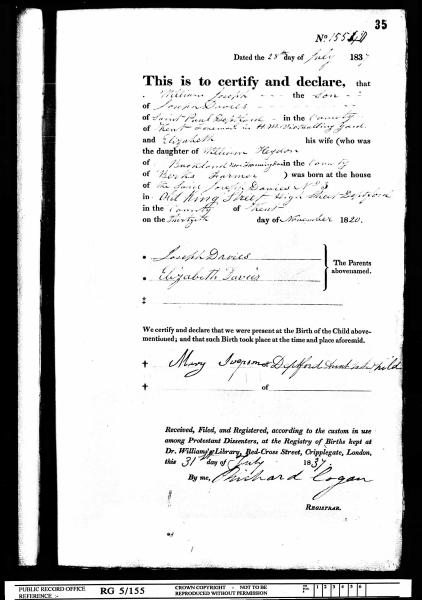 35
No. 155
Dated the 28th day of July 1837
This is to certify and declare, that
William Joseph the son
of Joseph Davies
of Saint Paul Deptford in the County
of Kent in H.M. Victualling Yard
and Elizabeth his wife (who was
the daughter of William Heydon
of Buckland in the County
of Berks Farmer ) was born at the house
of the said Joseph Davies No. 3
in Old King Street High Street Deptford
in the County of Kent
on the Thirtieth day of November 1820.
Joseph Davies
Elizabeth Davies
The Parents
abovenamed.
We certify and declare that we were present at the Birth of the Child above-
mentioned; and that such Birth took place at the time and place aforesaid.
† Mary Deptford Aunt to the Child
† of
Received, Filed, and Registered, according to the custom in use
among Protestant Dissenters, at the Registry of Births kept at
Dr. Williams's Library, Red-Cross Street, Cripplegate, London,
this 31st day of July 1837
By me, Richard Cogan
REGISTRAR.
PUBLIC RECORD OFFICE
REFERENCE :-
RG 5/155
CROWN COPYRIGHT - NOT TO BE
REPRODUCED WITHOUT PERMISSION
1 2 3 4 5 6